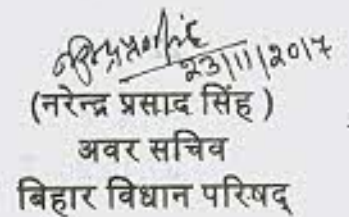 23/11/2017
(नरेन्द्र प्रसाद सिंह )
अवर सचिव
बिहार विधान परिषद्